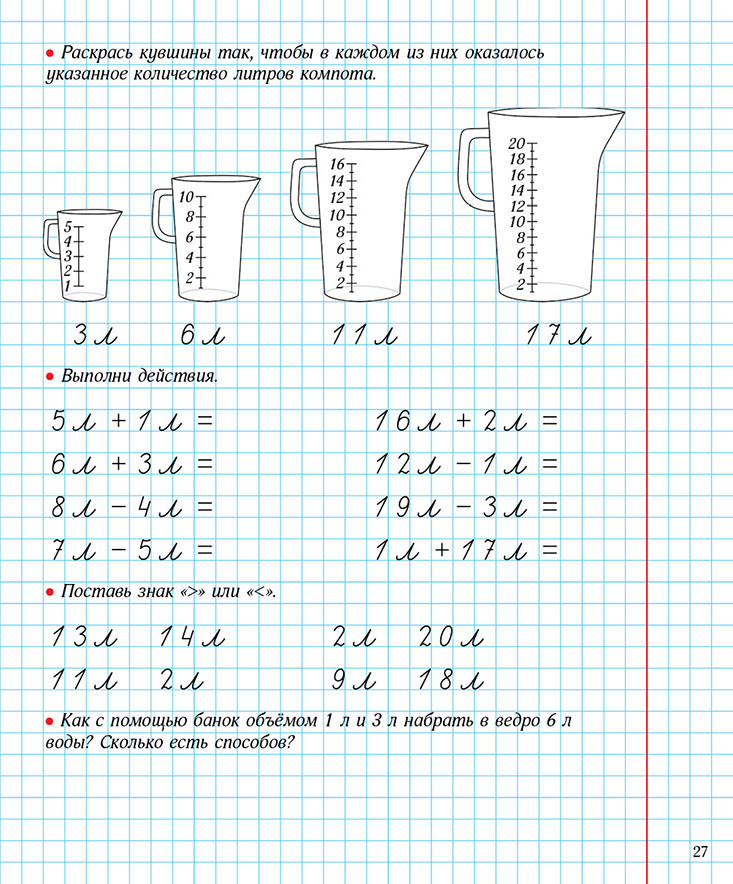 • Раскрась кувшины так, чтобы в каждом из них оказалось
указанное количество литров компота.
5
4
3
2
1
10
8
6
4
2
16
14
12
10
8
6
4
2
20
18
16
14
12
10
8
6
4
2
3 л 6 л 11 л 17 л
• Выполни действия.
5 л + 1 л = 16 л + 2 л =
6 л + 3 л = 12 л - 1 л =
8 л - 4 л = 19 л - 3 л =
7 л - 5 л = 1 л + 17 л =
• Поставь знак «>» или «<».
13 л 14 л 2 л 20 л
11 л 2 л 9 л 18 л
• Как с помощью банок объёмом 1 л и 3 л набрать в ведро 6 л
воды? Сколько есть способов?
27